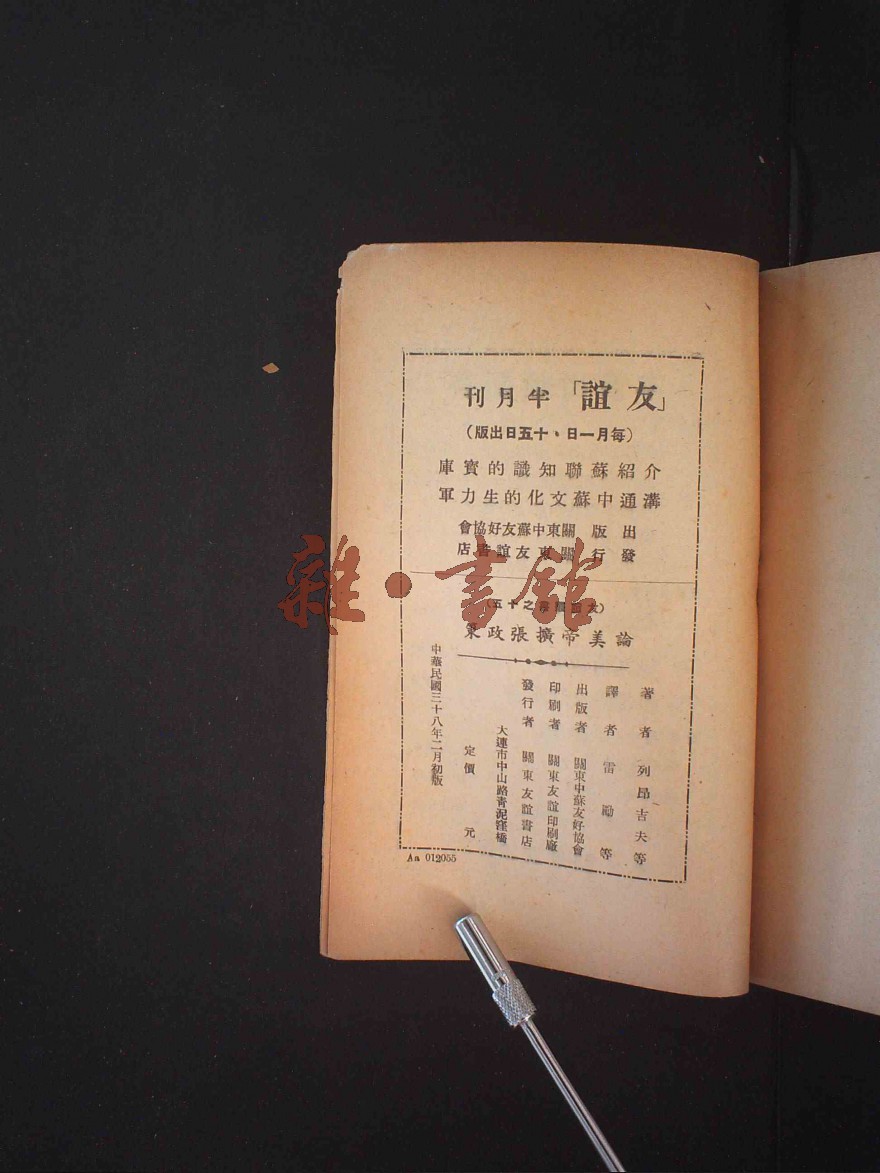 「友誼」半月刊
(每月一日、十五日出版)
介紹蘇聯知識的寶庫
溝通中蘇文化的生力軍
出版 關東中蘇友好協會
發行 關東友誼書店
雜·書館
之十五)
論美帝擴張政策
著者 列昂吉夫等
譯者 雷勵等
出版者 關東中蘇友好協會
印刷者 關東友誼印刷廠
發行者 關東友誼書店
大連市中山路青泥窪橋
定價 元
中華民國三十八年二月初版
Aa 012055